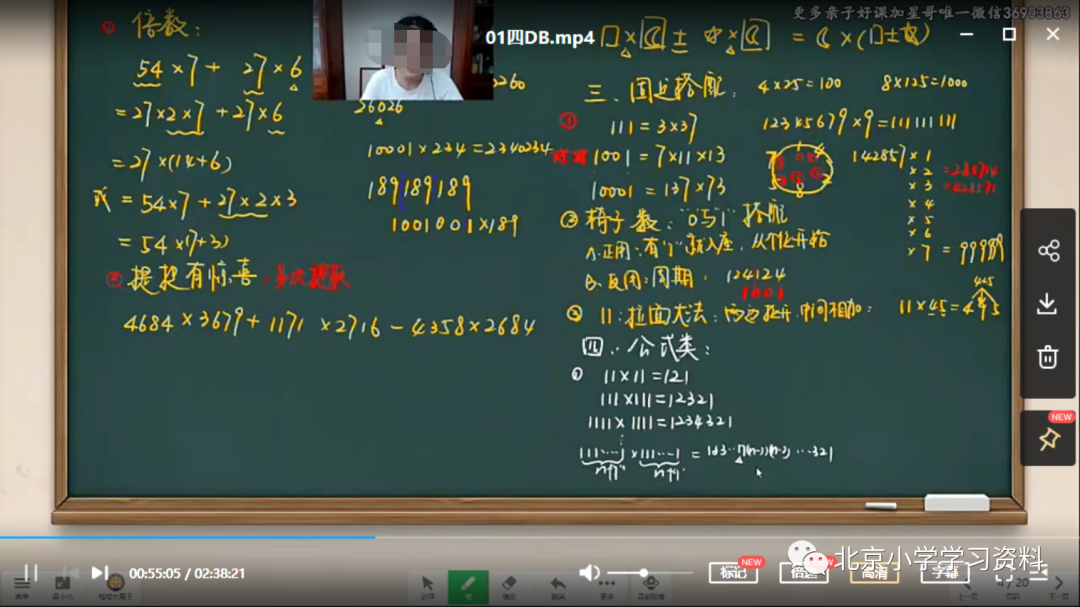 更多亲子好课加星哥唯一微信36903863
01四DB.mp4
① 倍数：
54×7+ 27×6
=27×2×7+27×6
=27×(14+6)
或 =54×7+27×2×3
=54×(7+3)
② 提把有惊喜
4684×3679+1171×2716-4358×2684
26026
10001×234=2340234
189189189
1001001×189
4×25=100
8×125=1000
①
111=3×37
12345679×9=111111111
1001=7×11×13
10001=137×73
142857×1
×2
×3
×4
×5
×6
×7=999999
② 椅子数："0与1"搭配
A.正用：有"1"就入座，从个位开始
B.反用：周期：124124
1001
③ 11：拉面大法：两边拉开，中间相加：
11×45=495
4+5
四、公式类：
① 11×11=121
111×111=12321
1111×1111=1234321
00:55:05 / 02:38:21
NEW
NEW
标记
NEW
倍速
高清
字幕
北京小学学习资料